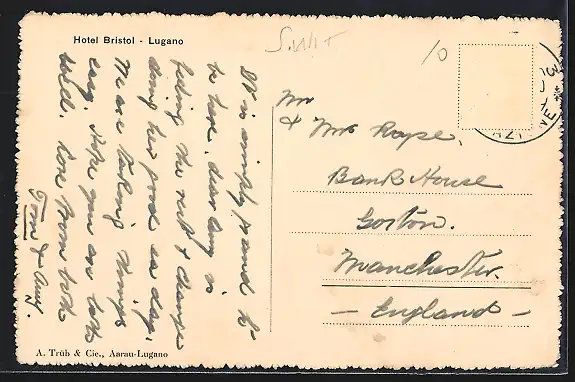 Hotel Bristol - Lugano
It is simply grand to
be here, dear Amy is
feeling the rest & change
doing her good each day,
We are taking things
easy. Hope you are both
well. Love from both
Tom & Amy.
Mr
& Mrs Rape.
Bank House
Gorton.
Manchester.
- England -
A. Trüb & Cie., Aarau-Lugano